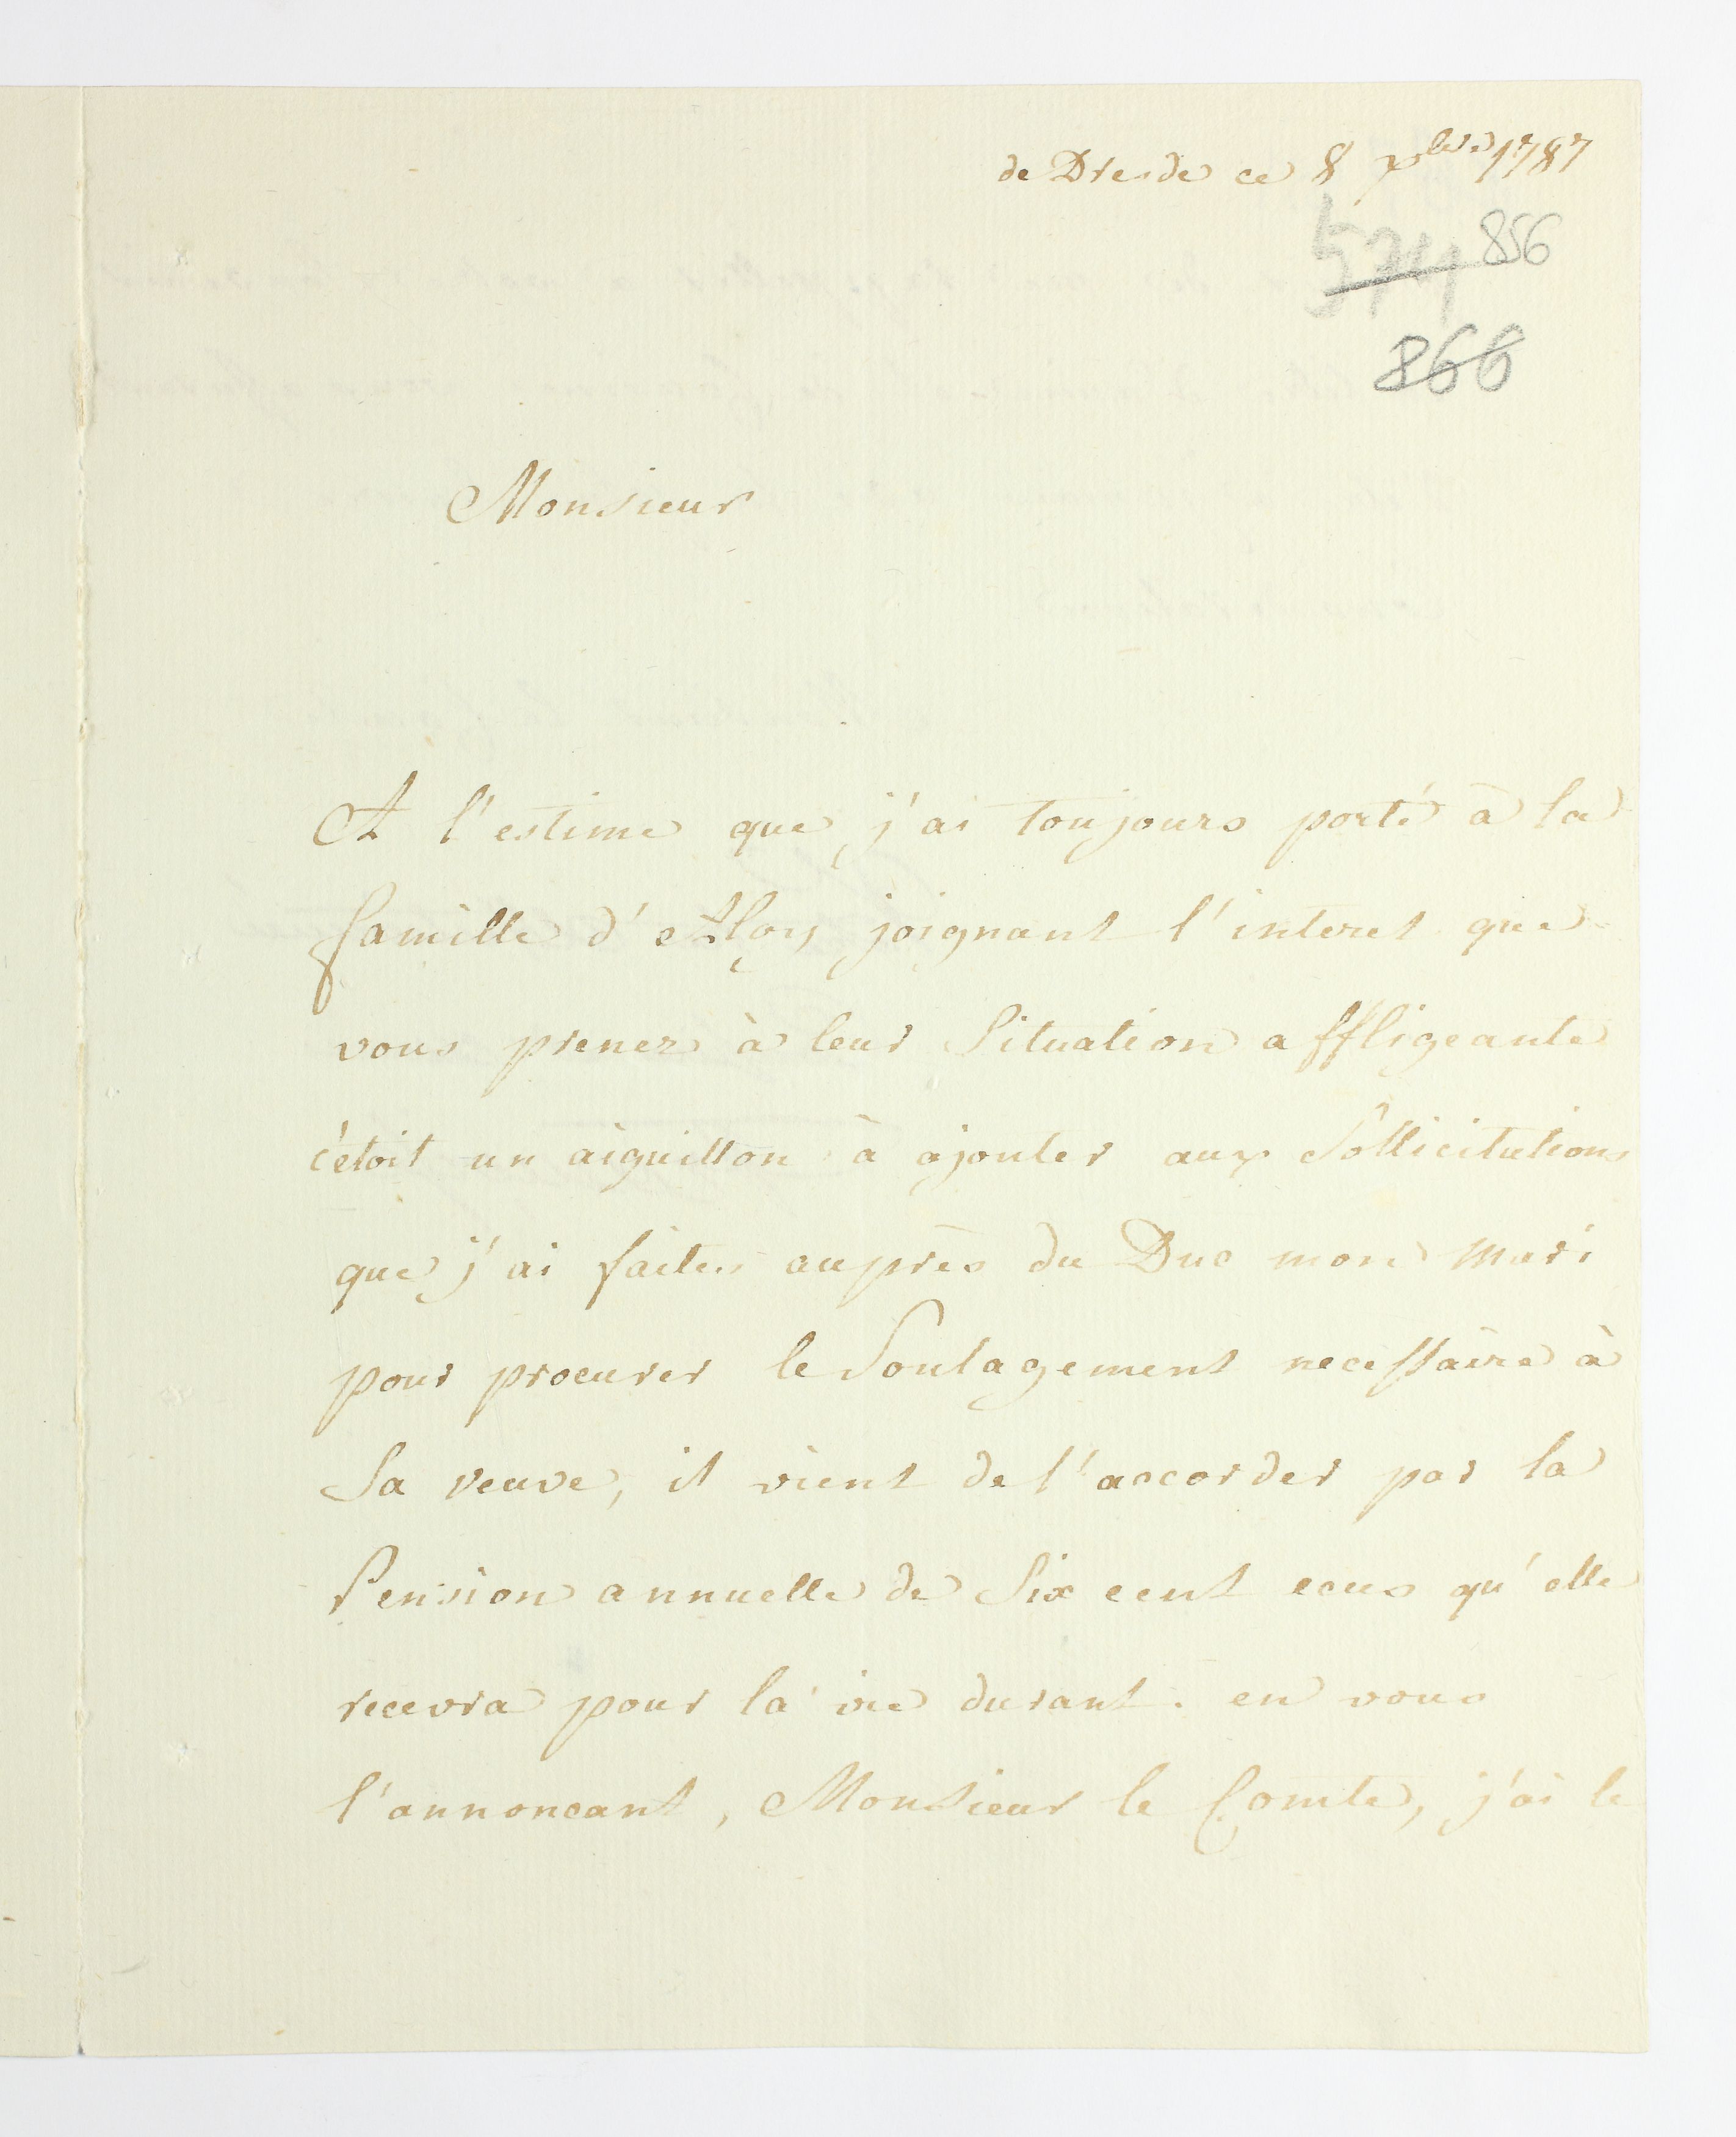 de Dresde ce 8 xbre 1787
5741 856
866
Monsieur
A l'estime que j'ai toujours porté à la
famille d'Aloy joignant l'interet que
vous prenez à leur Situation affligeante
c'étoit un aiguillon à ajouter aux Sollicitations
que j'ai faites auprès du Duc mon mari
pour procurer le Soulagement necessaire à
Sa veuve, il vient de l'accorder par la
Pension annuelle de Six cent ecus qu'elle
recevra pour la vie durant. en vous
l'annoncant, Monsieur le Comte, j'ai le